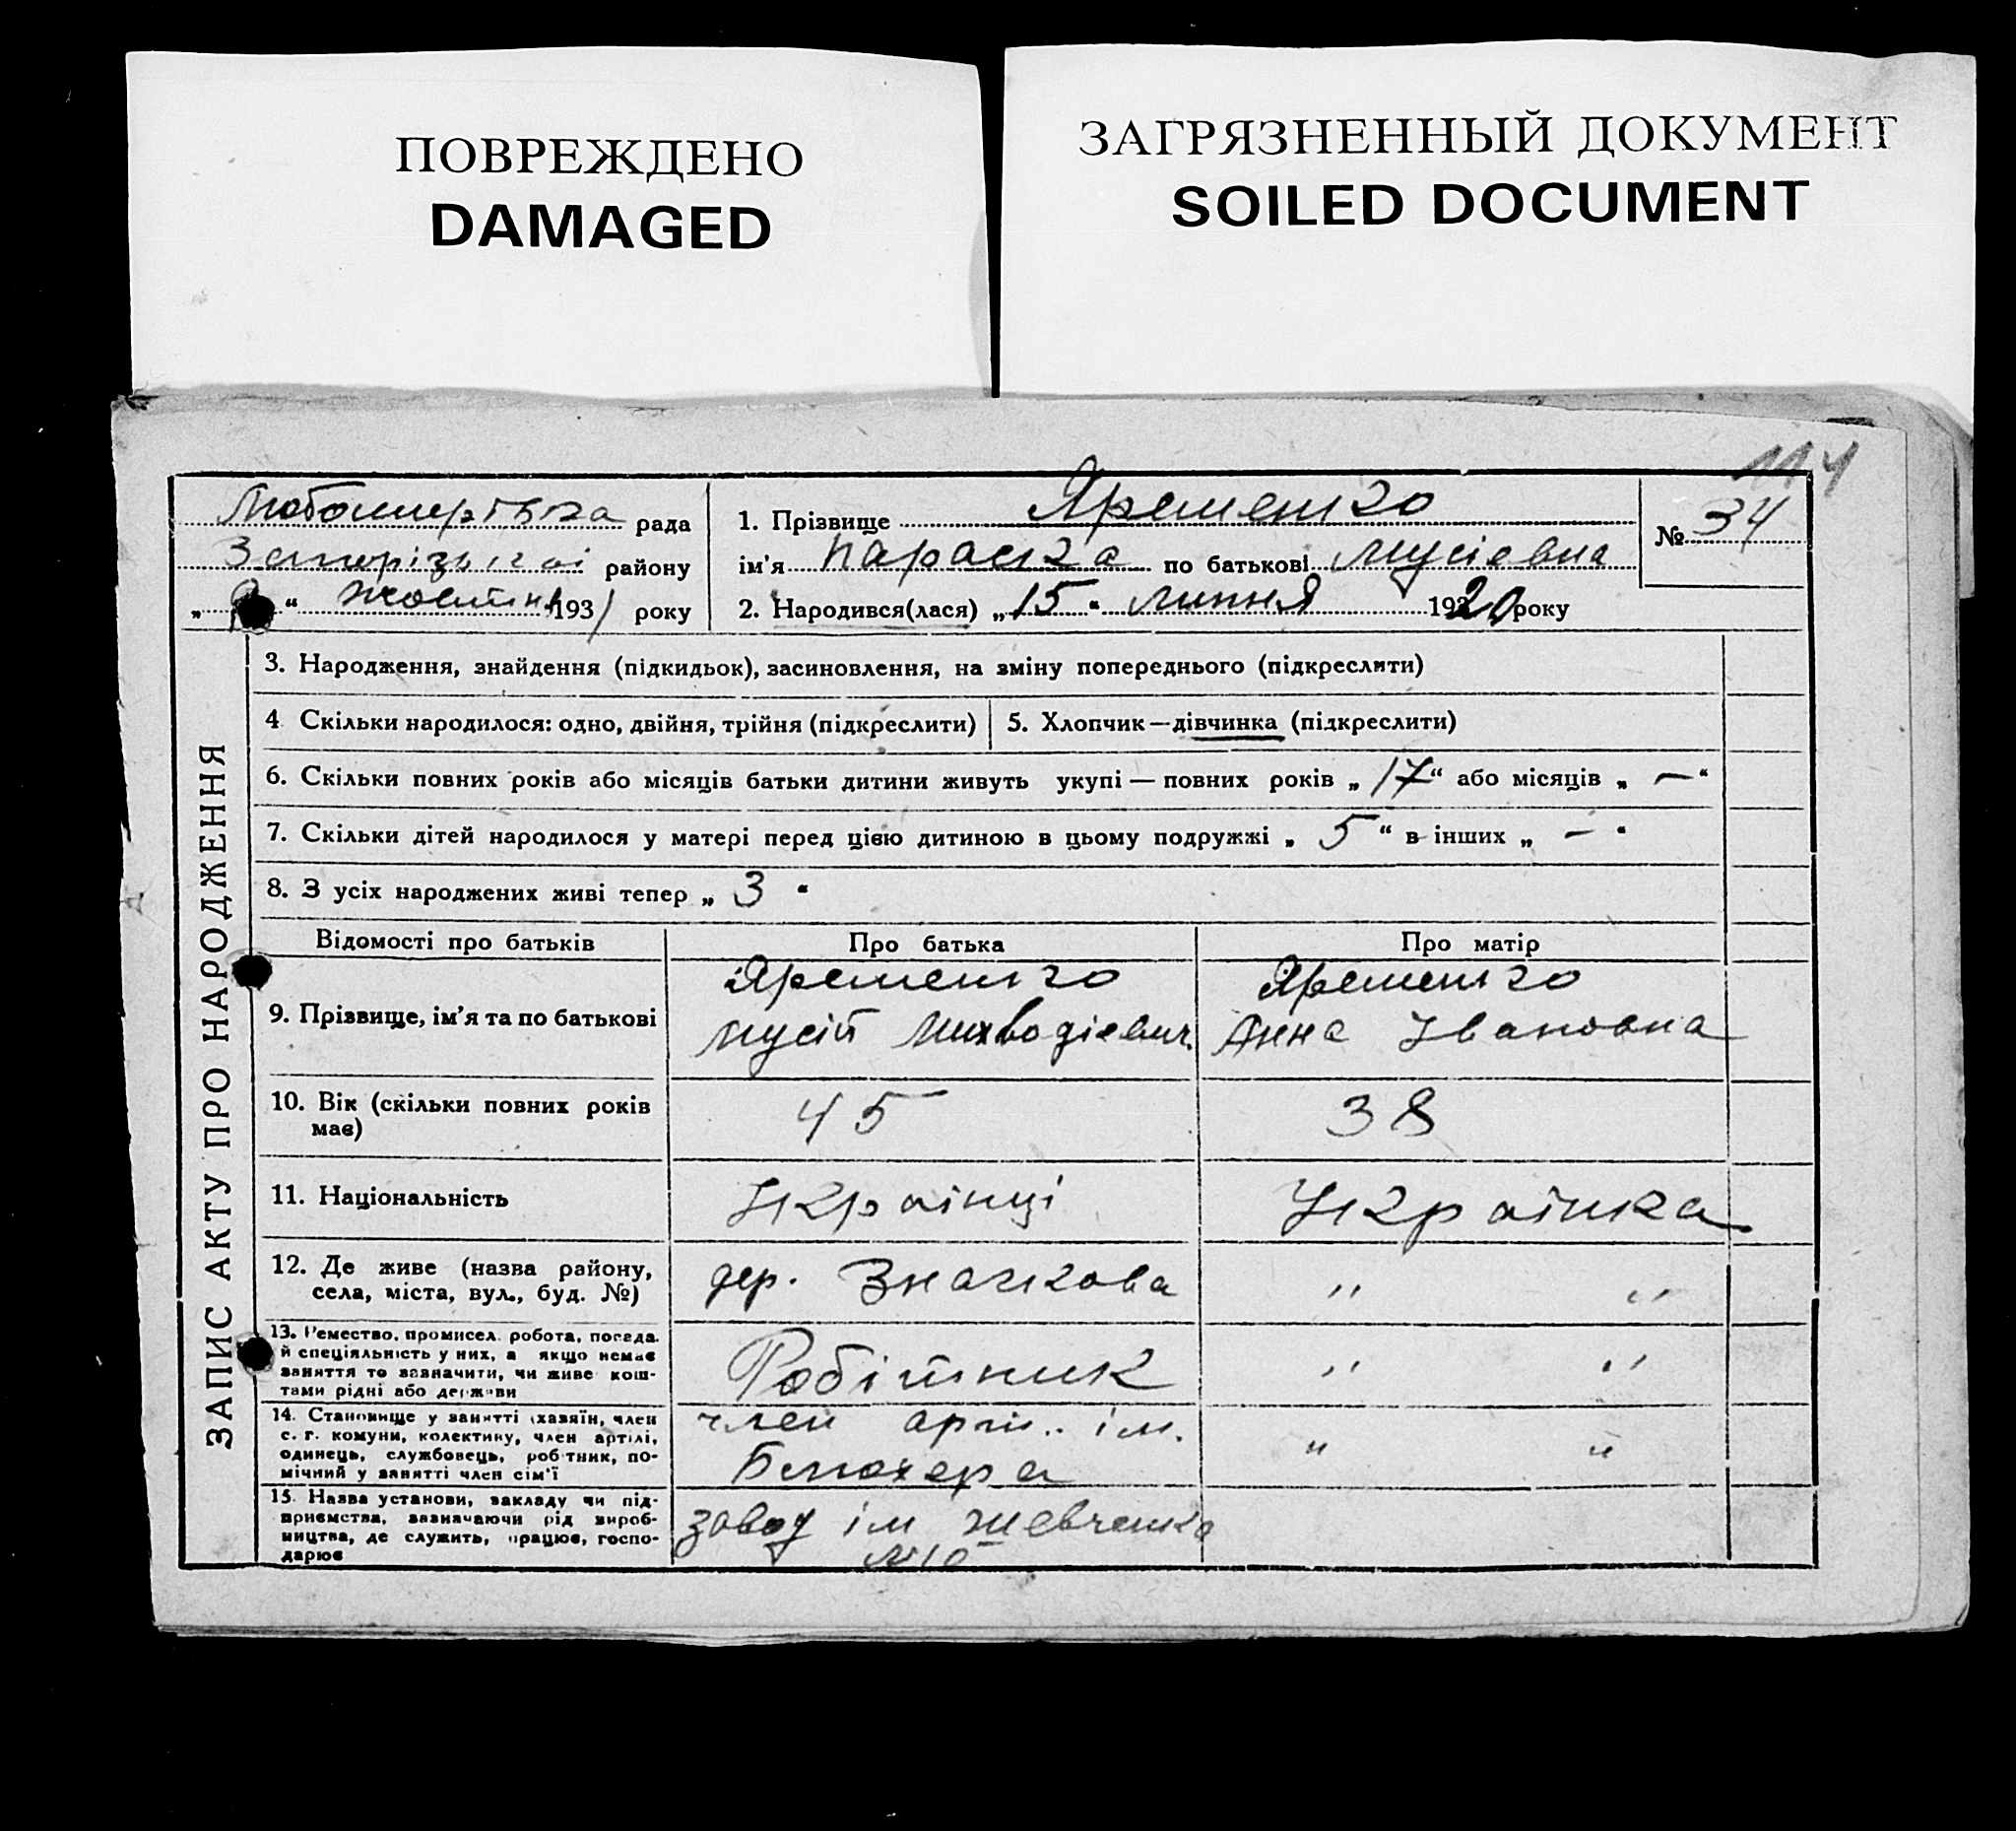 ПОВРЕЖДЕНО
DAMAGED
ЗАГРЯЗНЕННЫЙ ДОКУМЕНТ
SOILED DOCUMENT
114
рада
району
„ “ Жовтня 1931 року
1. Прізвище Яременко
ім'я Параска по батькові Мусіевна
2. Народився(лася) „15“ Липня 1920 року
№ 34
ЗАПИС АКТУ ПРО НАРОДЖЕННЯ
3. Народження, знайдення (підкидьок), засиновлення, на зміну попереднього (підкреслити)
4 Скільки народилося: одно, двійня, трійня (підкреслити)
5. Хлопчик—дівчинка (підкреслити)
6. Скільки повних років або місяців батьки дитини живуть укупі — повних років „ 17 “ або місяців „ — “
7. Скільки дітей народилося у матері перед цією дитиною в цьому подружжі „ 5 “ в інших „ — “
8. З усіх народжених живі тепер „ 3 “
Відомості про батьків
Про батька
Про матір
9. Прізвище, ім'я та по батькові
Яременко
Мусій
Яременко
Анна Івановна
10. Вік (скільки повних років
має)
45
38
11. Національність
Украінці
Украінка
12. Де живе (назва району,
села, міста, вул., буд. №)
дер. Значкова
" "
13. Ремество, промисел, робота, посада
й спеціяльність у них, а якщо немає
заняття то зазначити, чи живе кош-
тами рідні або держави
Робітник
" "
14. Становище у занятті (хазяїн, член
с. г. комуни, колективу, член артілі,
одинець, службовець, робітник, по-
мічний у занятті член сім'ї
член арт.. ім.
Блюхера
" "
15. Назва установи, закладу чи під-
приємства, зазначаючи рід вироб-
ництва, де служить, працює, госпо-
дарює
завод ім Шевченка
№10